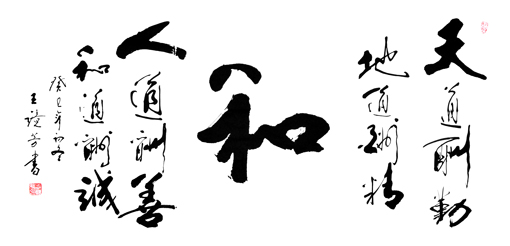 天道酬勤
地道酬精
和
人道酬善
和道酬誠
癸巳年初冬
王芳書